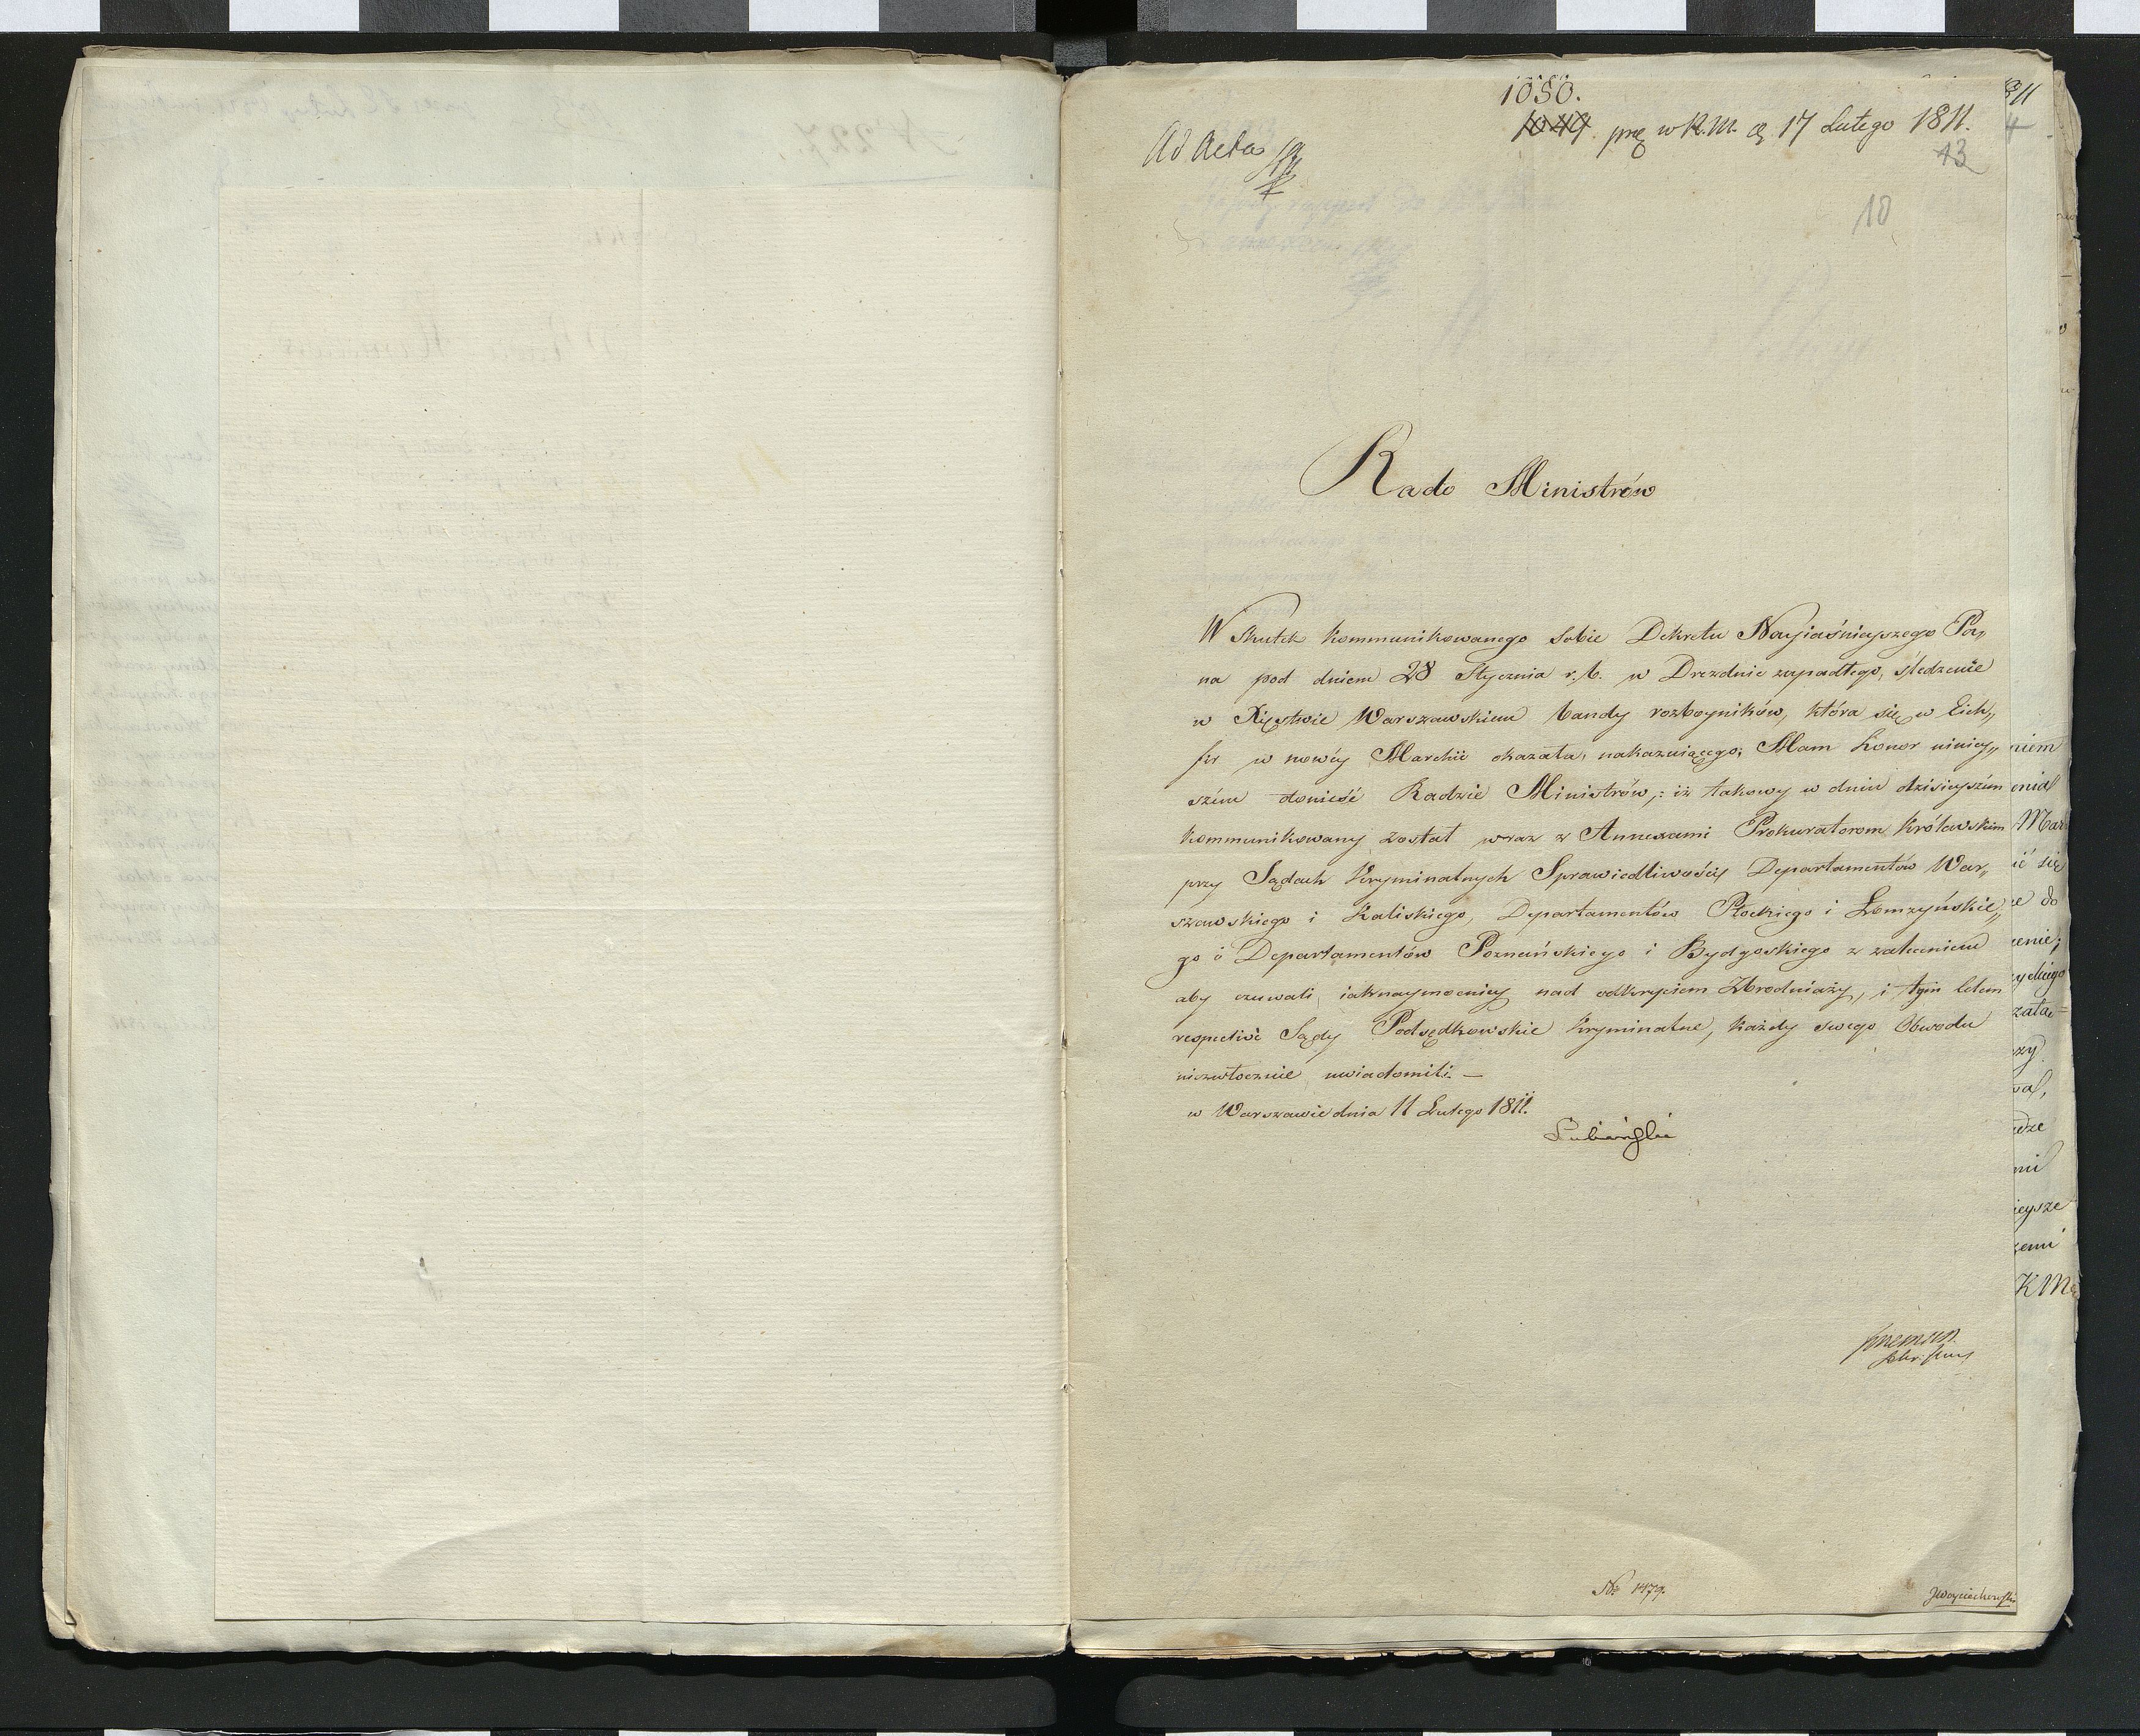 1050.
1049 prz. w R.M. d. 17 Lutego 1811.
Ad Acta
13
10
Rado Ministrów
W Skutek kommunikowanego sobie Dekretu Nayiaśnieyszego Pa„
na pod dniem 28 Stycznia r. b. w Drezdnie zapadłego, śledzenie
w Xięstwie Warszawskiem bandy rozboyników, która się w Eich„
fir w nowéy Marchii okazała, nakazuiącego; Mam honor niniey„
szém donieść Radzie Ministrów,: iż takowy w dniu dzisieyszém
kommunikowany został wraz z Annexami Prokuratorom Królewskim
przy Sądach Kryminalnych Sprawiedliwości Departamentów War„
szawskiego i Kaliskiego, Departamentów Płockiego i Łomżyńskie„
go i Departamentów Poznańskiego i Bydgoskiego z zaleceniem
aby czuwali iaknaymocniey nad odkryciem Zbrodniaży, i tym celem
respective Sądy Podsędkowskie Kryminalne, każdy swego Obwodu
niezwłocznie uwiadomili. —
w Warszawie dnia 11 Lutego 1811.
Łubieński
No 1479.
JWoyciechowski